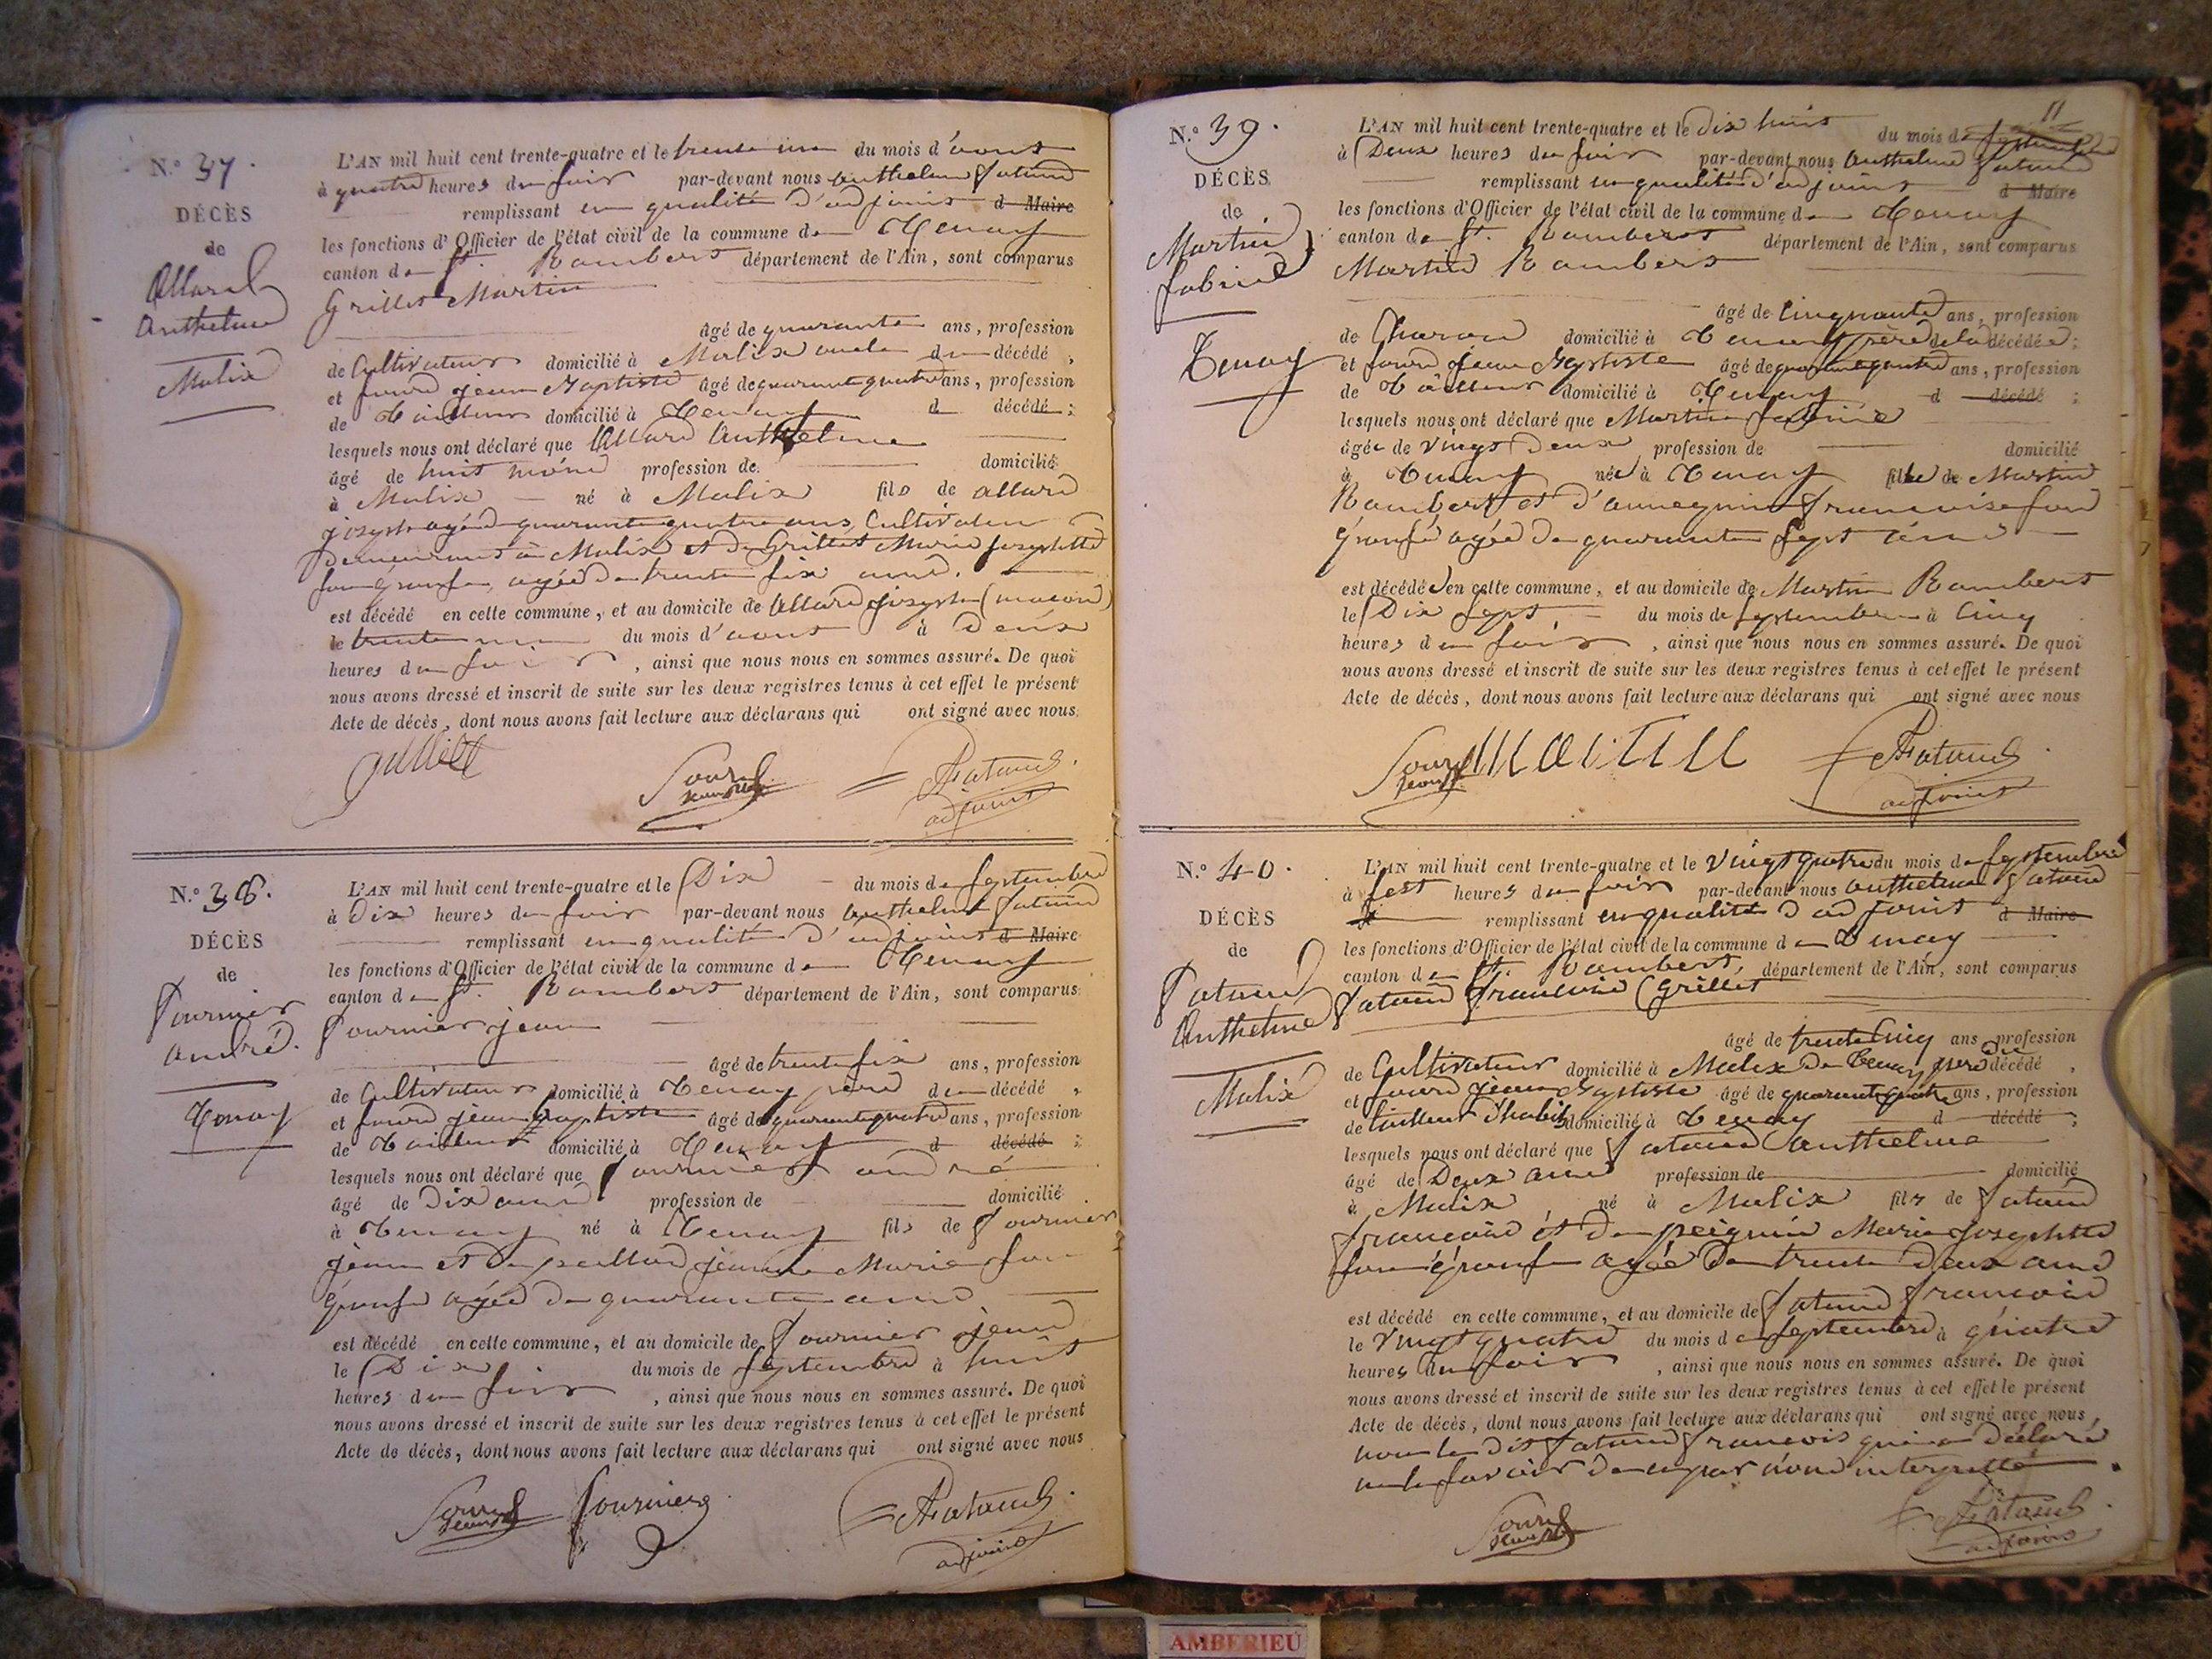 N.° 37.
DÉCÈS
de
Allard
Anthelme
Malix
L'AN mil huit cent trente-quatre et le trente un du mois d'aout
à quatre heures du soir par-devant nous Anthelme Tatand
remplissant en qualité d'adjoint d Maire
les fonctions d'Officier de l'état civil de la commune de Tenay
canton de St. Rambert département de l'Ain, sont comparus
Grillet Martin
âgé de quarante ans, profession
de Cultivateur domicilié à Malix oncle du décédé,
et jean Baptiste âgé de quarante quatre ans, profession
de tailleur domicilié à Tenay d décédé;
lesquels nous ont déclaré que Allard Anthelme
âgé de huit profession de domicilié
à Malix né à Malix fils de allard
joseph agé de quarante quatre ans, Cultivateur
demeurant à Malix et de Grillet Marie josephette
agée de trente six
est décédé en cette commune, et au domicile de Allard joseph
le trente un du mois d'aout à Deux
heures du soir, ainsi que nous nous en sommes assuré. De quoi
nous avons dressé et inscrit de suite sur les deux registres tenus à cet effet le présent
Acte de décès, dont nous avons fait lecture aux déclarans qui ont signé avec nous.
adjoint
N.° 38.
DÉCÈS
de
Fournier
André.
Tenay
L'AN mil huit cent trente-quatre et le Dix du mois de septembre
à Dix heures du soir par-devant nous Anthelme Tatand
remplissant en qualité d'adjoint d Maire
les fonctions d'Officier de l'état civil de la commune de Tenay
canton de St. Rambert département de l'Ain, sont comparus
Fournier jean
âgé de trente six ans, profession
de Cultivateur domicilié à Tenay père du décédé,
et jean Baptiste âgé de quarante quatre ans, profession
de tailleur domicilié à Tenay d décédé;
lesquels nous ont déclaré que Fournier andré
âgé de Dix profession de domicilié
à Tenay né à Tenay fils de Fournier
jean et de jeanne Marie
agée de quarante
est décédé en cette commune, et au domicile de Fournier jean
le Dix du mois de septembre à huit
heures du soir, ainsi que nous nous en sommes assuré. De quoi
nous avons dressé et inscrit de suite sur les deux registres tenus à cet effet le présent
Acte de décès, dont nous avons fait lecture aux déclarans qui ont signé avec nous
Fournier
adjoint
11
N.° 39.
DÉCÈS
de
Martin
Tenay
L'AN mil huit cent trente-quatre et le Dix huit du mois de septembre
à Deux heures du soir par-devant nous Anthelme Tatand
remplissant en qualité d'adjoint d Maire
les fonctions d'Officier de l'état civil de la commune de Tenay
canton de St. Rambert département de l'Ain, sont comparus
Martin Rambert
âgé de Cinquante ans, profession
de Charon domicilié à Tenay père de la décédée;
et jean Baptiste âgé de quarante quatre ans, profession
de tailleur domicilié à Tenay d décédé;
lesquels nous ont déclaré que Martin
âgée de vingt Deux profession de domicilié
à Tenay née à Tenay fille de Martin
Rambert et francoise
agée de quarante sept
est décédé en cette commune, et au domicile de Martin Rambert
le Dix sept du mois de septembre à Cinq
heures du soir, ainsi que nous nous en sommes assuré. De quoi
nous avons dressé et inscrit de suite sur les deux registres tenus à cet effet le présent
Acte de décès, dont nous avons fait lecture aux déclarans qui ont signé avec nous
Martin
adjoint
N.° 40.
DÉCÈS
de
Tatand
Anthelme
Malix
L'AN mil huit cent trente-quatre et le vingt quatre du mois de septembre
à sept heures du soir par-devant nous Anthelme Tatand
remplissant en qualité d'adjoint d Maire
les fonctions d'Officier de l'état civil de la commune de Tenay
canton de St. Rambert, département de l'Ain, sont comparus
Tatand francois (Grillet
âgé de trente Cinq ans, profession
de Cultivateur domicilié à Malix de Tenay père du décédé,
et jean Baptiste âgé de quarante quatre ans, profession
de tailleur d'habit domicilié à Tenay d décédé;
lesquels nous ont déclaré que Tatand Anthelme
âgé de Deux profession de domicilié
à Malix né à Malix fils de Tatand
francois et de Marie josephette
agée de trente deux
est décédé en cette commune, et au domicile de Tatand francois
le vingt quatre du mois de septembre à quatre
heures du soir, ainsi que nous nous en sommes assuré. De quoi
nous avons dressé et inscrit de suite sur les deux registres tenus à cet effet le présent
Acte de décès, dont nous avons fait lecture aux déclarans qui ont signé avec nous,
non le dit Tatand francois qui a déclaré
ne le savoir de ce par nous
adjoint
AMBERIEU